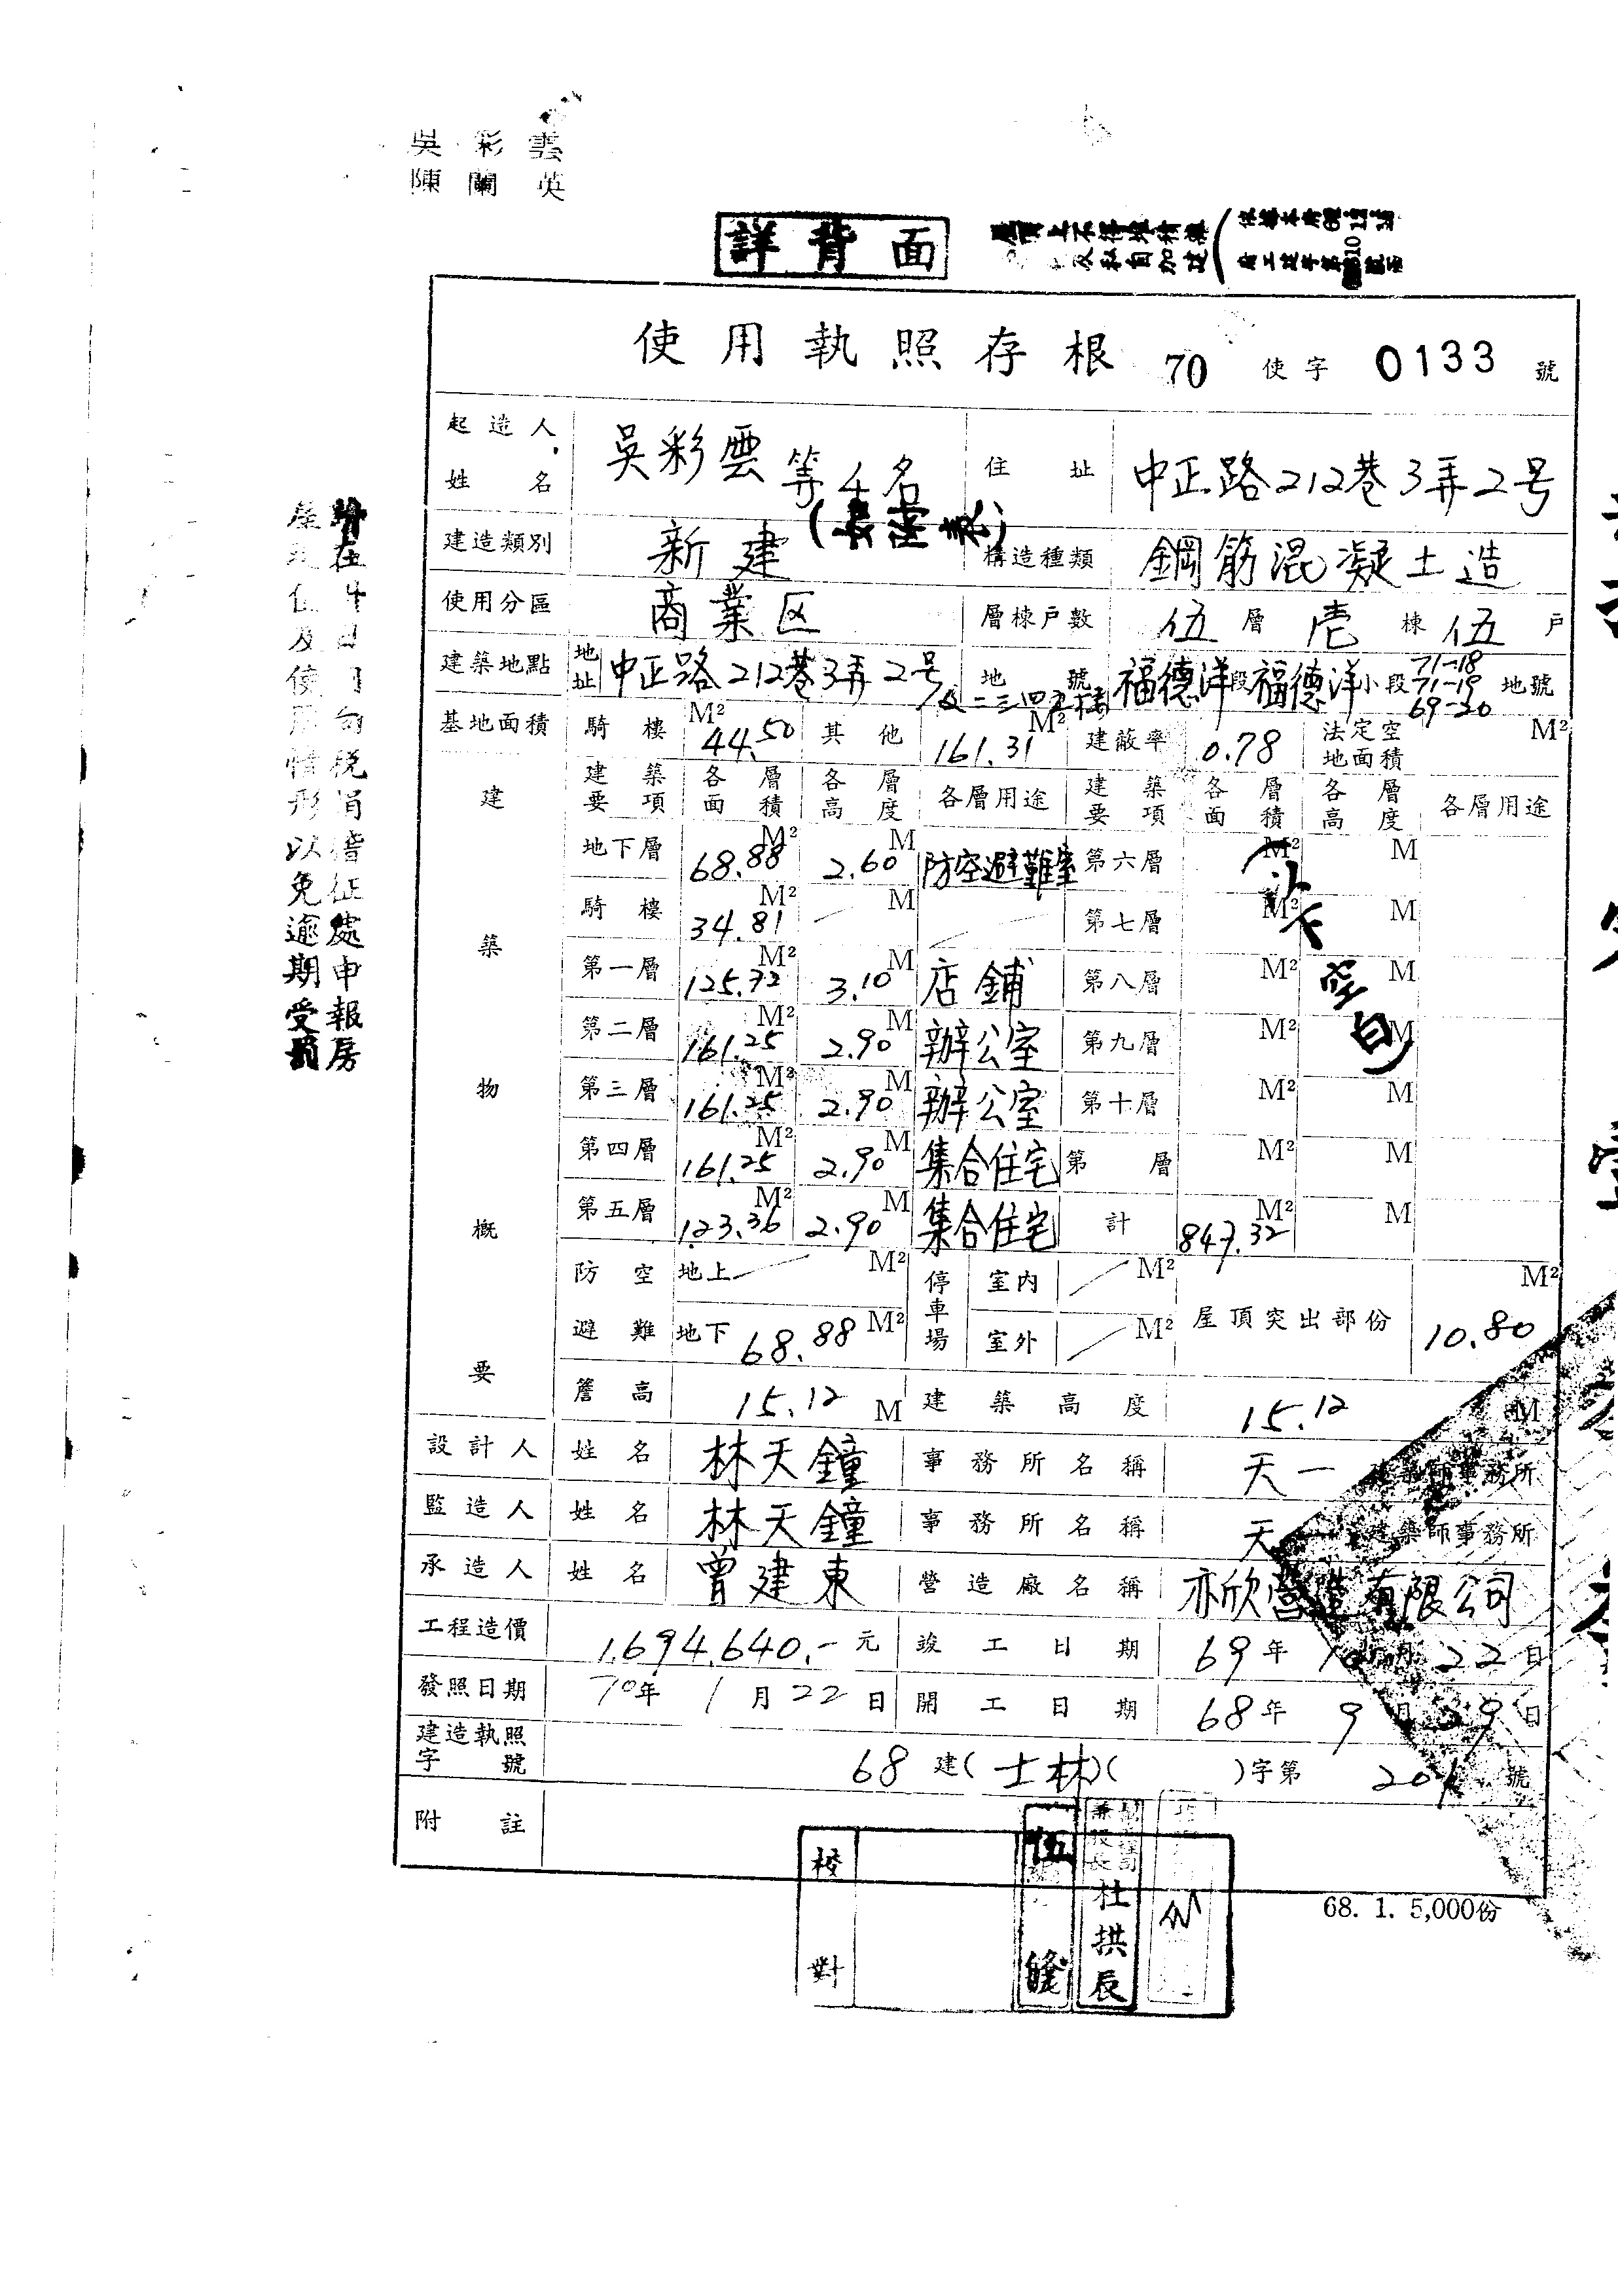 吳彩雲
陳蘭英
詳背面
使用執照存根 70 使字 0133 號
起造人姓名 吳彩雲等4名 住址 中正路212巷3弄2号
建造類別 新建 構造種類 鋼筋混凝土造
使用分區 商業区 層棟戶數 伍層壱棟伍戶
建築地點 地址 中正路212巷3弄2号 及二三四五樓 地號 福德洋段福德洋小段 71-18 71-19 69-20 地號
基地面積 騎樓 44.50 M² 其他 161.31 M² 建蔽率 0.78 法定空地面積 M²
建築物概要
建築要項 各層面積 各層高度 各層用途 建築要項 各層面積 各層高度 各層用途
地下層 68.88 M² 2.60 M 防空避難室 第六層 M² M
騎樓 34.81 M² M 第七層 M² M
第一層 125.72 M² 3.10 M 店鋪 第八層 M² M
第二層 161.25 M² 2.90 M 辦公室 第九層 M² M
第三層 161.25 M² 2.90 M 辦公室 第十層 M² M
第四層 161.25 M² 2.90 M 集合住宅 第 層 M² M
第五層 123.36 M² 2.90 M 集合住宅 計 847.32 M² M
以下空白
防空避難 地上 M² 停車場 室內 M² 屋頂突出部份 10.80 M²
地下 68.88 M² 室外 M²
簷高 15.12 M 建築高度 15.12 M
設計人 姓名 林天鐘 事務所名稱 天一建築師事務所
監造人 姓名 林天鐘 事務所名稱 天一建築師事務所
承造人 姓名 曾建東 營造廠名稱 亦欣營造有限公司
工程造價 1,694,640.- 元 竣工日期 69年 月22日
發照日期 70年1月22日 開工日期 68年9月29日
建造執照字號 68 建(士林)( )字第 號
附註
校對
杜拱辰
68. 1. 5,000份
稅捐稽征處申報房
屋 及使 情形以免逾期受罰